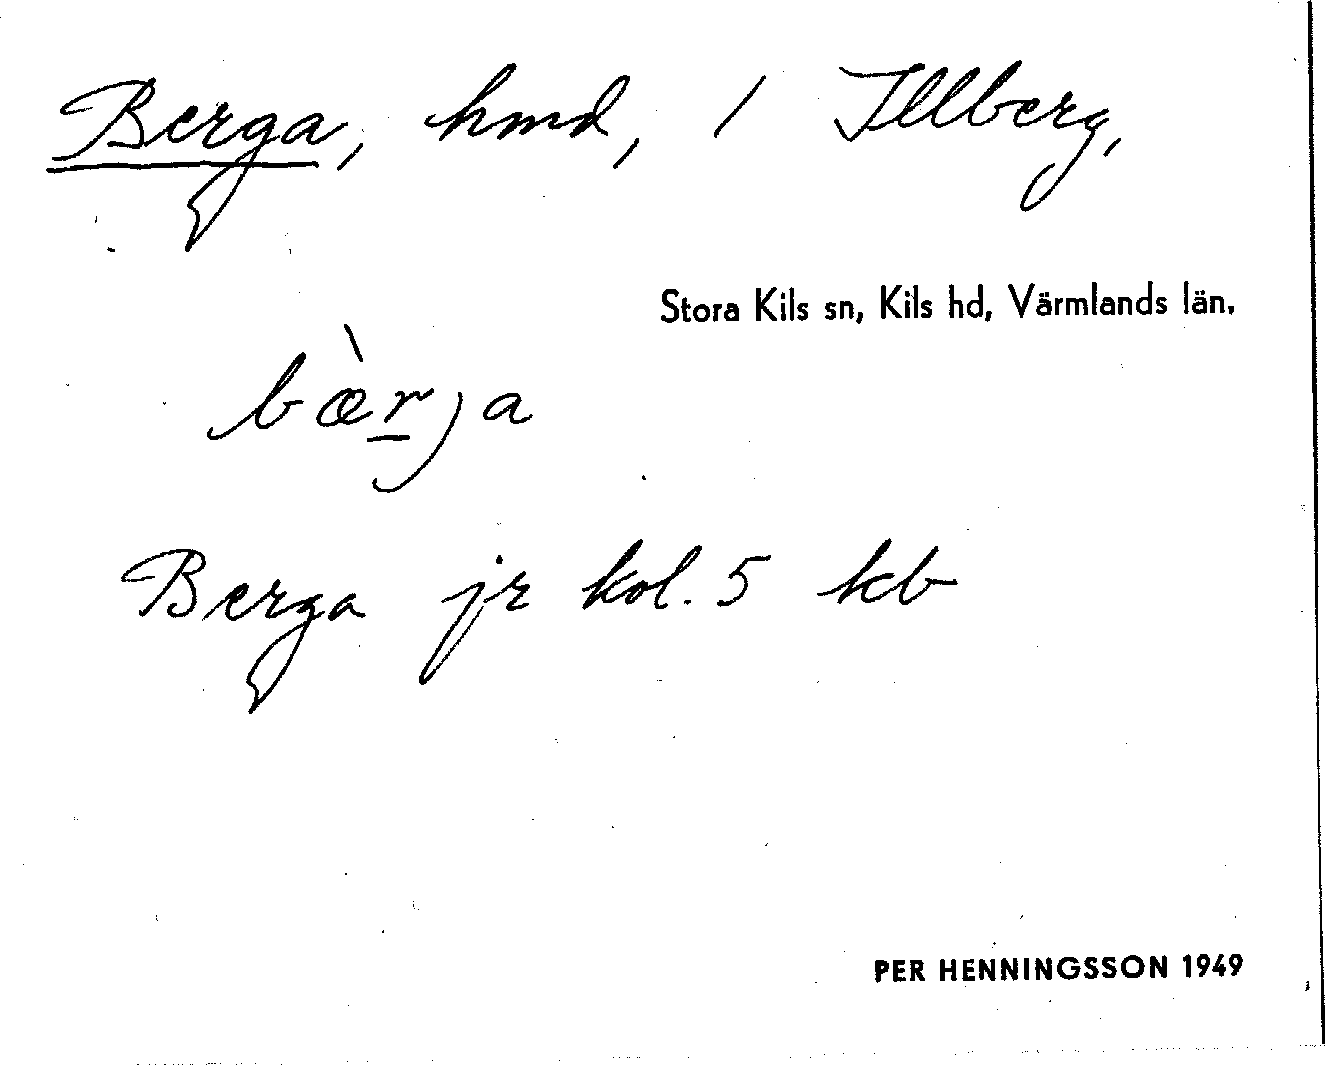 Berga, hmd, / Illberg,
Stora Kils sn, Kils hd, Värmlands län.
bæ̀rja
Berga jr kol. 5 kb
PER HENNINGSSON 1949